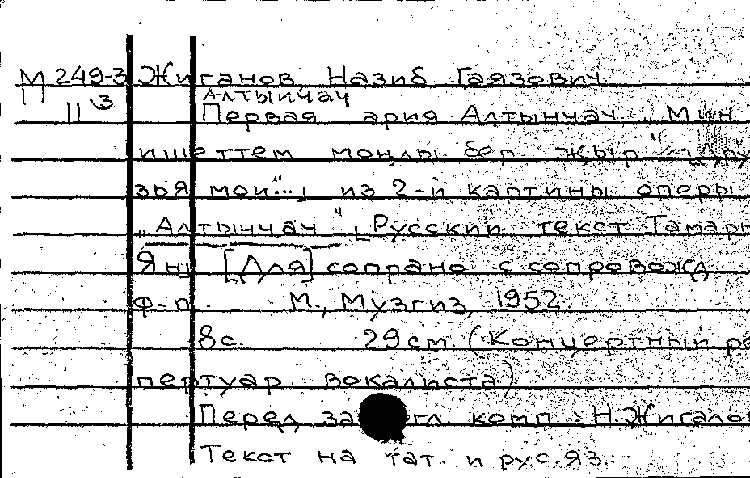 М 249-3 Жиганов Назиб Гаязович
Алтынчач
II 3 Первая ария Алтынчач „Мин
ишеттем моңлы бер жыр" „Дру
зья мои"..., из 2-й картины оперы
„Алтынчач". Русский текст Тамары
Ян. [Для] сопрано с сопровожд.
ф-п. М., Музгиз, 1952.
8с. 29см. (Концертный ре
пертуар вокалиста)
Перед загл. комп.: Н. Жиганов
Текст на тат. и рус. яз.